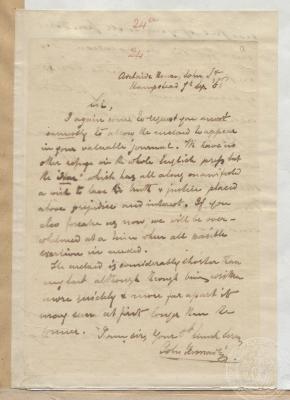 24a
24
Adelaide House, John St
Hampstead 9th Sep.
Sir,
I again come to request you most
earnestly to allow the enclosed to appear
in your valuable journal. We have no
other refuge in the whole English press but
the "Star" which has all along manifested
a wish to have the truth & justice placed
above prejudice and interest. If you
also forsake us now we will be over-
whelmed at a time when all possible
exertion is needed.
The enclosed is considerably shorter than
my last although through being written
more quickly & more far apart it
may seem at first longer than the
former. I am Sir, Your
John